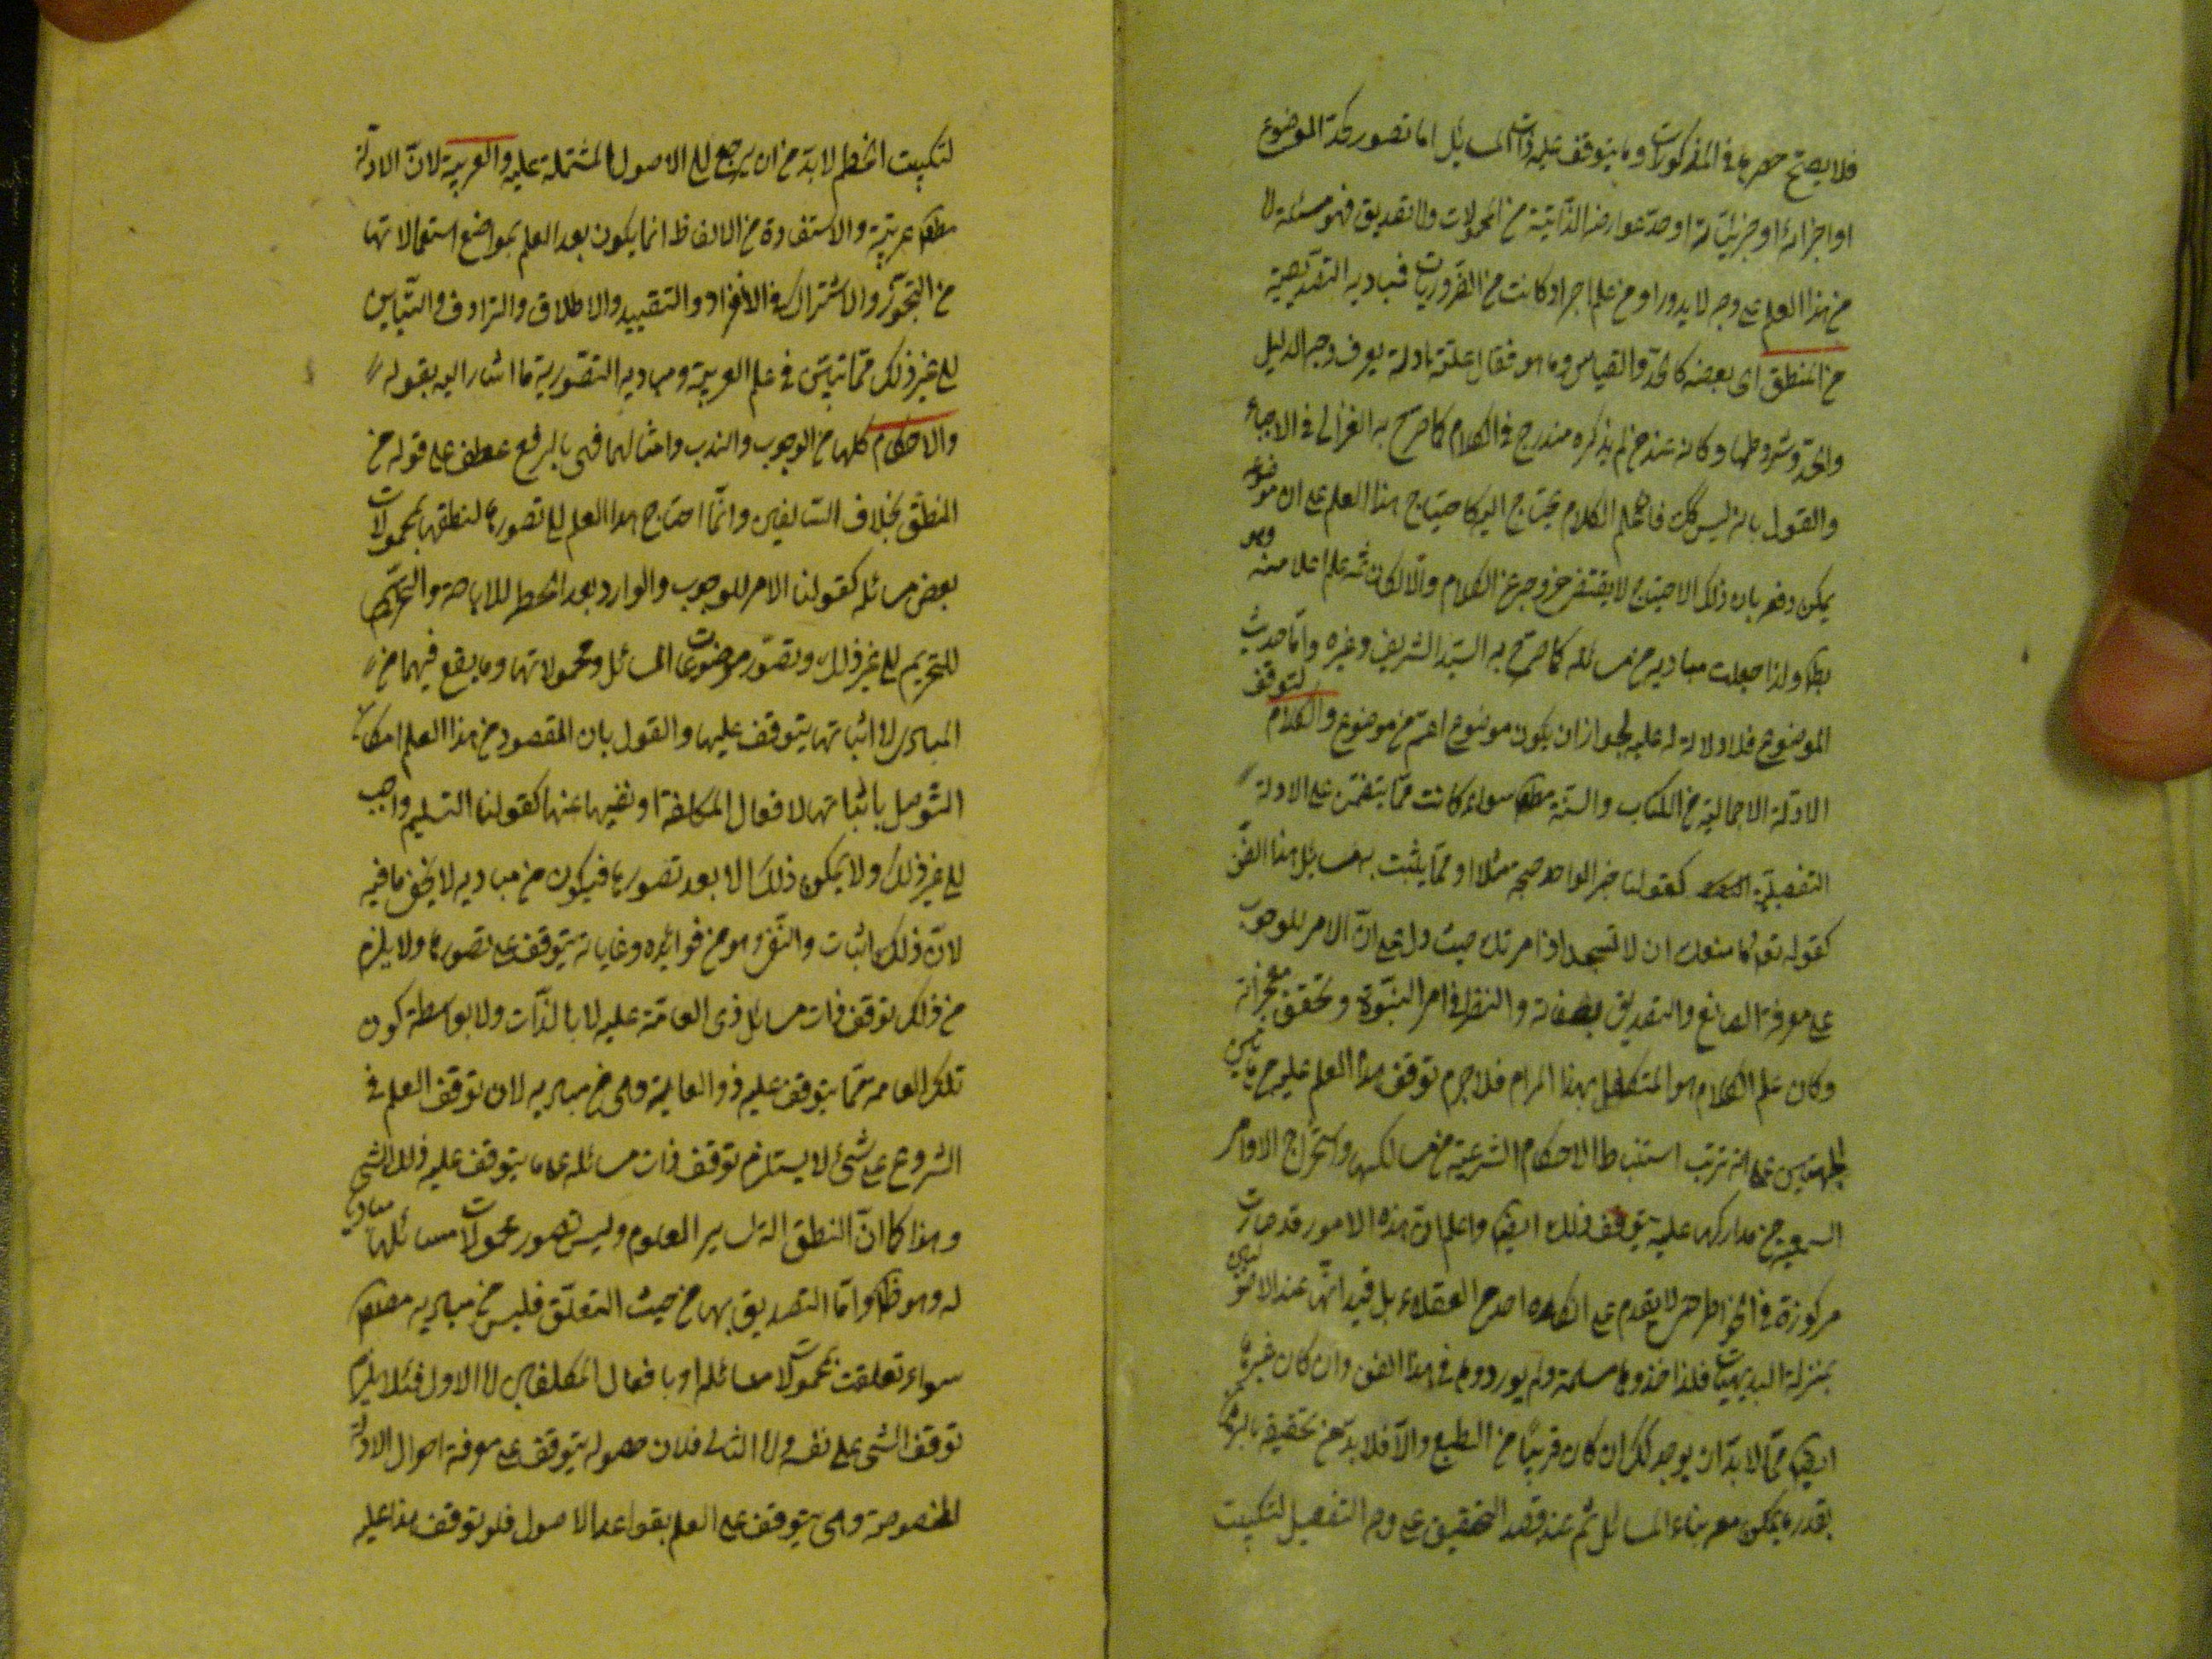 فلا يصح حصرها في المذكورات وما يتوقف عليه ذات المسايل اما تصور كحد الموضوع
او اجزائه او جزئياته او حد عوارضه الذاتية من المحمولات واما تصديق فهو مسئلة لا
من هذا العلم على وجه لا يدور او من علم اخر او كانت من الضروريات فمباديه التصديقية
من المنطق اى بعضه كالحد والقياس وما هو فقال علته مادلة يعرف وجه الدليل
والحد وشروطها وكانه عند من لم يذكره مندرج في الكلام كما صرح به الغزالى في الاحياء
والقول بانه ليس كك فان علم الكلام يحتاج اليه كاحتياج هذا العلم على ان موضوعه
يمكن دفعه بان ذلك الاحتياج لا يقتضى خروجه عن الكلام والا لكان ثمه علم اعلا منه وهو
بط ولذا جعلت مباديه من مسائله كما صرح به السيد الشريف وغيره واما حديث
الموضوع فلا دلالة له عليه لجواز ان يكون موضوع اعم من موضوع والكلام لتوقف
الادلة الاجمالية من الكتاب والسنة مط سواء كانت مما يتضمن على الادلة
التفصيلية كقولنا خبر الواحد حجة مثلا او مما يثبت به مسايل هذا الفن
كقوله تع ما منعك ان لا تسجد اذ امرتك حيث دل على ان الامر للوجوب
على معرفة الصانع والتصديق بصفاته والنظر في امر النبوة وتحقق معجزاته
وكان علم الكلام هو المتكفل بهذا المرام فلا جرم توقف هذا العلم عليه من هاتين
الجهتين على انه ترتب استنباط الاحكام الشرعية من مسالكها واستخراج الاوامر
السمعية من مداركها عليه يتوقف ذلك ايض واعلم ان هذه الامور قد صارت
مركوزة في الخواطر حتى لا يقدم على انكاره احد من العقلاء بل قيد انها عند الاصوليين
بمنزلة البديهيات فلذا اخذوها مسلمة ولم يوردوها في هذا الفن وان كان غيرها
ايض مما لا بد ان يوجد كك ان كان قريبا من الطبع والا فلا بد من تحقيقه بالبرهان
بقدر ما يمكن معه بناء المسائل ثم عند قصد التحقيق على وجه التفصيل لتكيت
لتكيت الخصم لا بد من ان يرجع الى الاصول المشتملة عليه والعربية لان الادلة
مط عربية والاستفادة من الالفاظ انما يكون بعد العلم بمواضع استعمالاتها
من التجوز والاشتراك والافراد والتقييد والاطلاق والترادف والتباين
الى غير ذلك مما تبين في علم العربية ومباديه التصورية ما اشار اليه بقوله
والاحكام كلها من الوجوب والندب وامثالهما فهى بالرفع عطف على قوله من
المنطق بخلاف السابقين وانما احتاج هذا العلم الى تصورها لتعلقها بمحمولات
بعض مسائله كقولنا الامر للوجوب والوارد بعد الحظر للاباحة والنهى
للتحريم الى غير ذلك وتصور موضوعات المسائل ومحمولاتها وما يقع فيهما من
المبادى لان اثباتها يتوقف عليها والقول بان المقصود من هذا العلم امكان
التوصل باثباتها لافعال المكلفة او نفيها عنها كقولنا التسليم واجب
الى غير ذلك ولا يمكن ذلك الا بعد تصورها فيكون من مباديه لا يخفى ما فيه
لان ذلك الاثبات والنفى وهو من فوائده وغاياته يتوقف على تصورها ولا يلزم
من ذلك توقف ذات مسائل ذى الغاية عليه لا بالذات ولا بواسطة كون
تلك الغاية مما يتوقف عليه ذو الغاية وهى من مباديه لان توقف العلم في
الشروع على شئ لا يستلزم توقف ذات مسائله على ما يتوقف عليه ذلك الشئ
وهذا كما ان المنطق الة لساير العلوم وليس تصور محمولات مسائلها مباديا
له وهو ظ واما التصديق بها من حيث التعلق فليس من مباديه مط
سواء تعلقت بمحمولات مسائله او بافعال المكلفين اما الاول فلئلا يلزم
توقف الشئ على نفسه واما الثانى فلان حصوله يتوقف على معرفة احوال الادلة
المخصوصة وهى يتوقف على العلم بقواعد الاصول فلو توقف هذا عليه